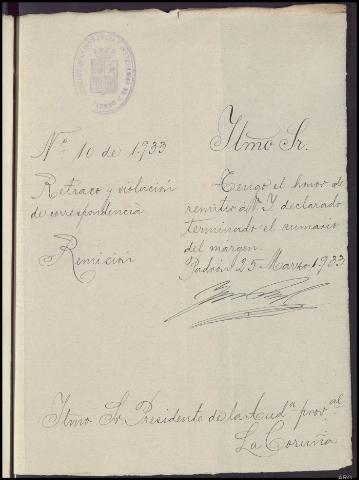 Nº 10 de 1.933
Retraso y violación
de correspondencia
Remisión
Iltmo Sr.
Tengo el honor de
remitir a V. I. declarado
terminado el sumario
del margen.
Padrón 25 Marzo 1.933
Iltmo Sr Presidente de la Audª provªl
La Coruña